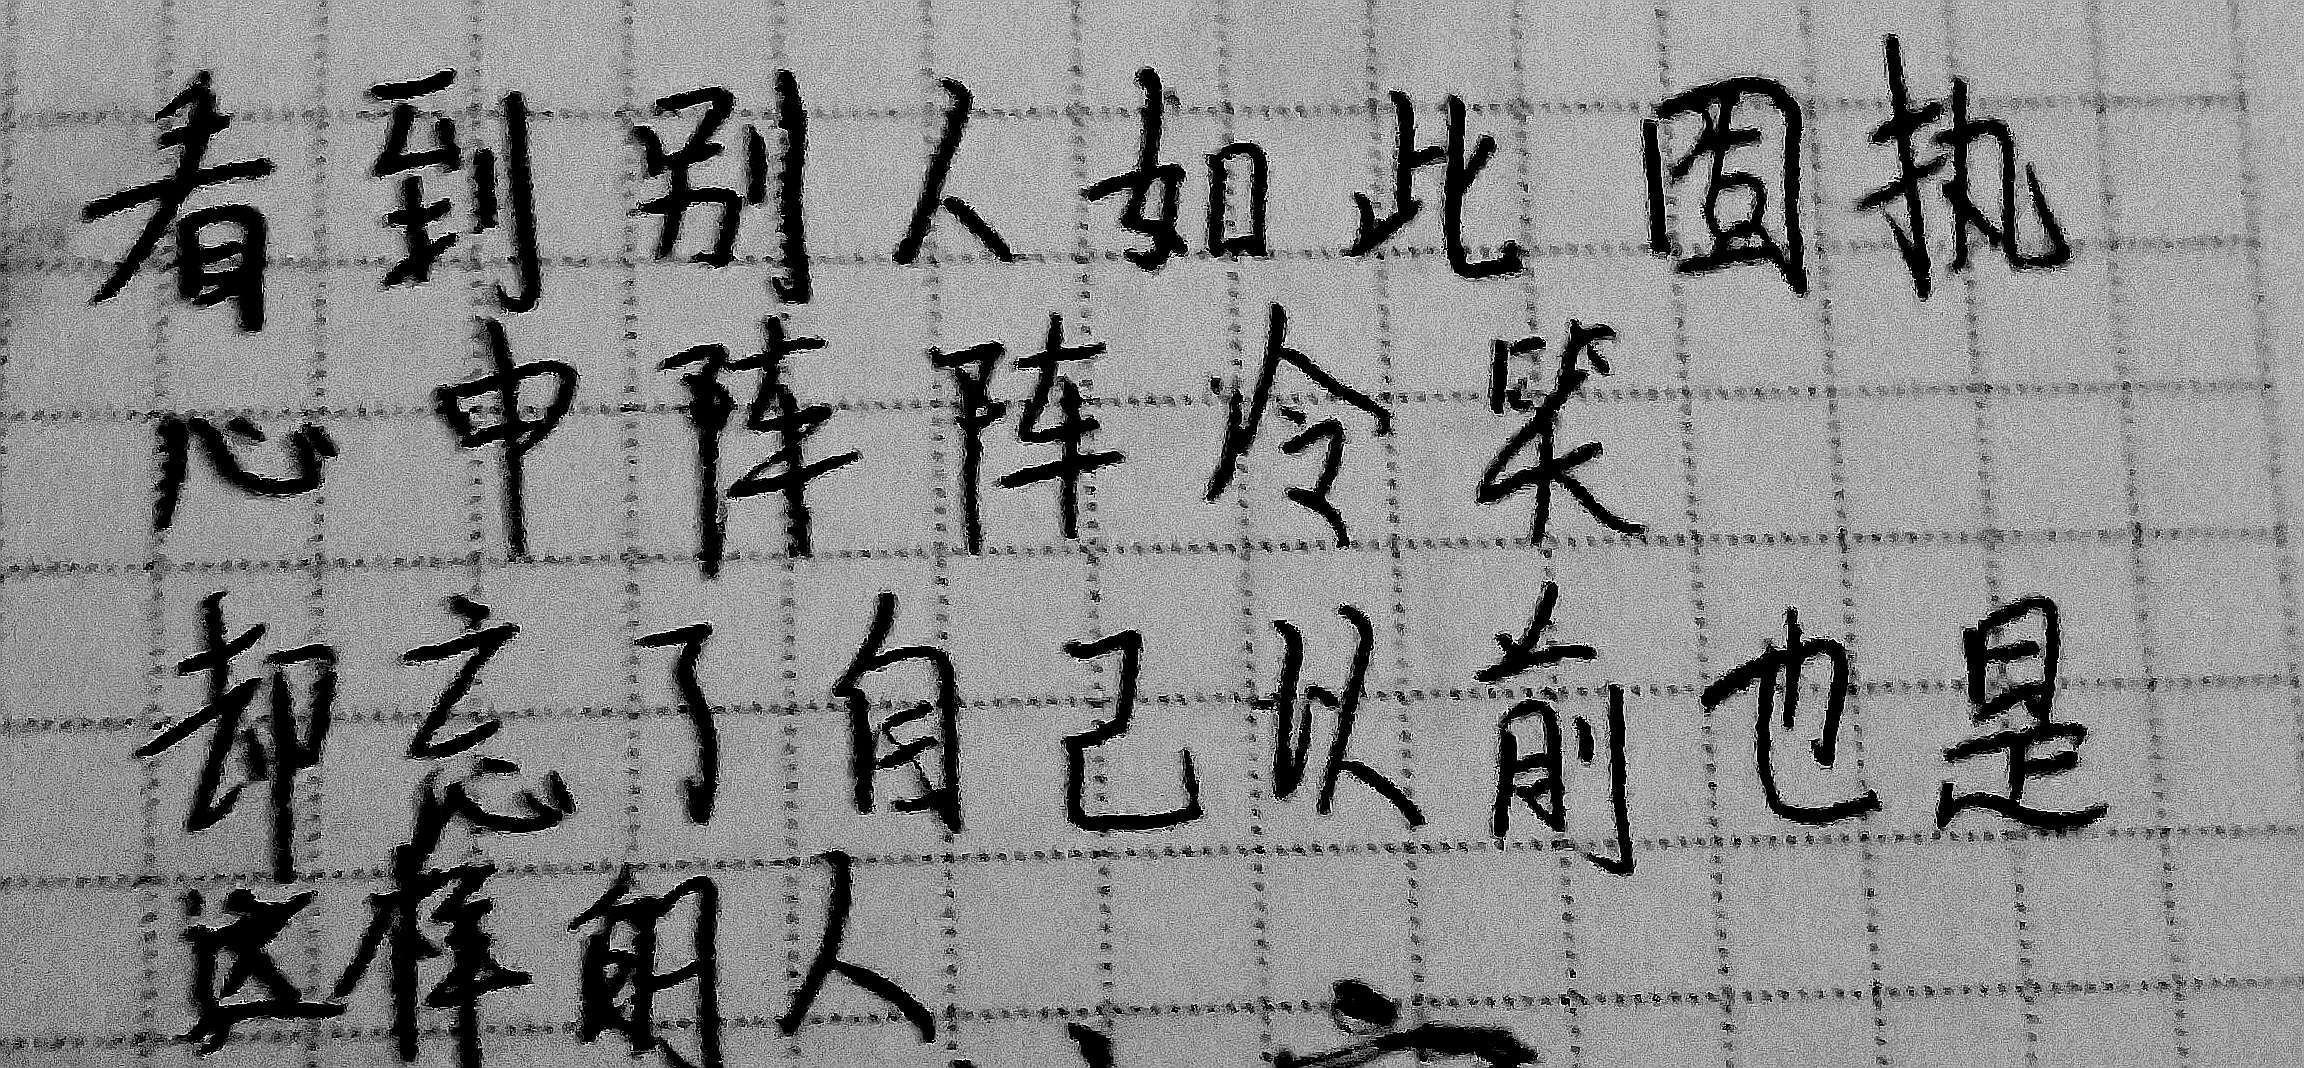 看到别人如此固执
心中阵阵冷笑
却忘了自己以前也是
这样的人